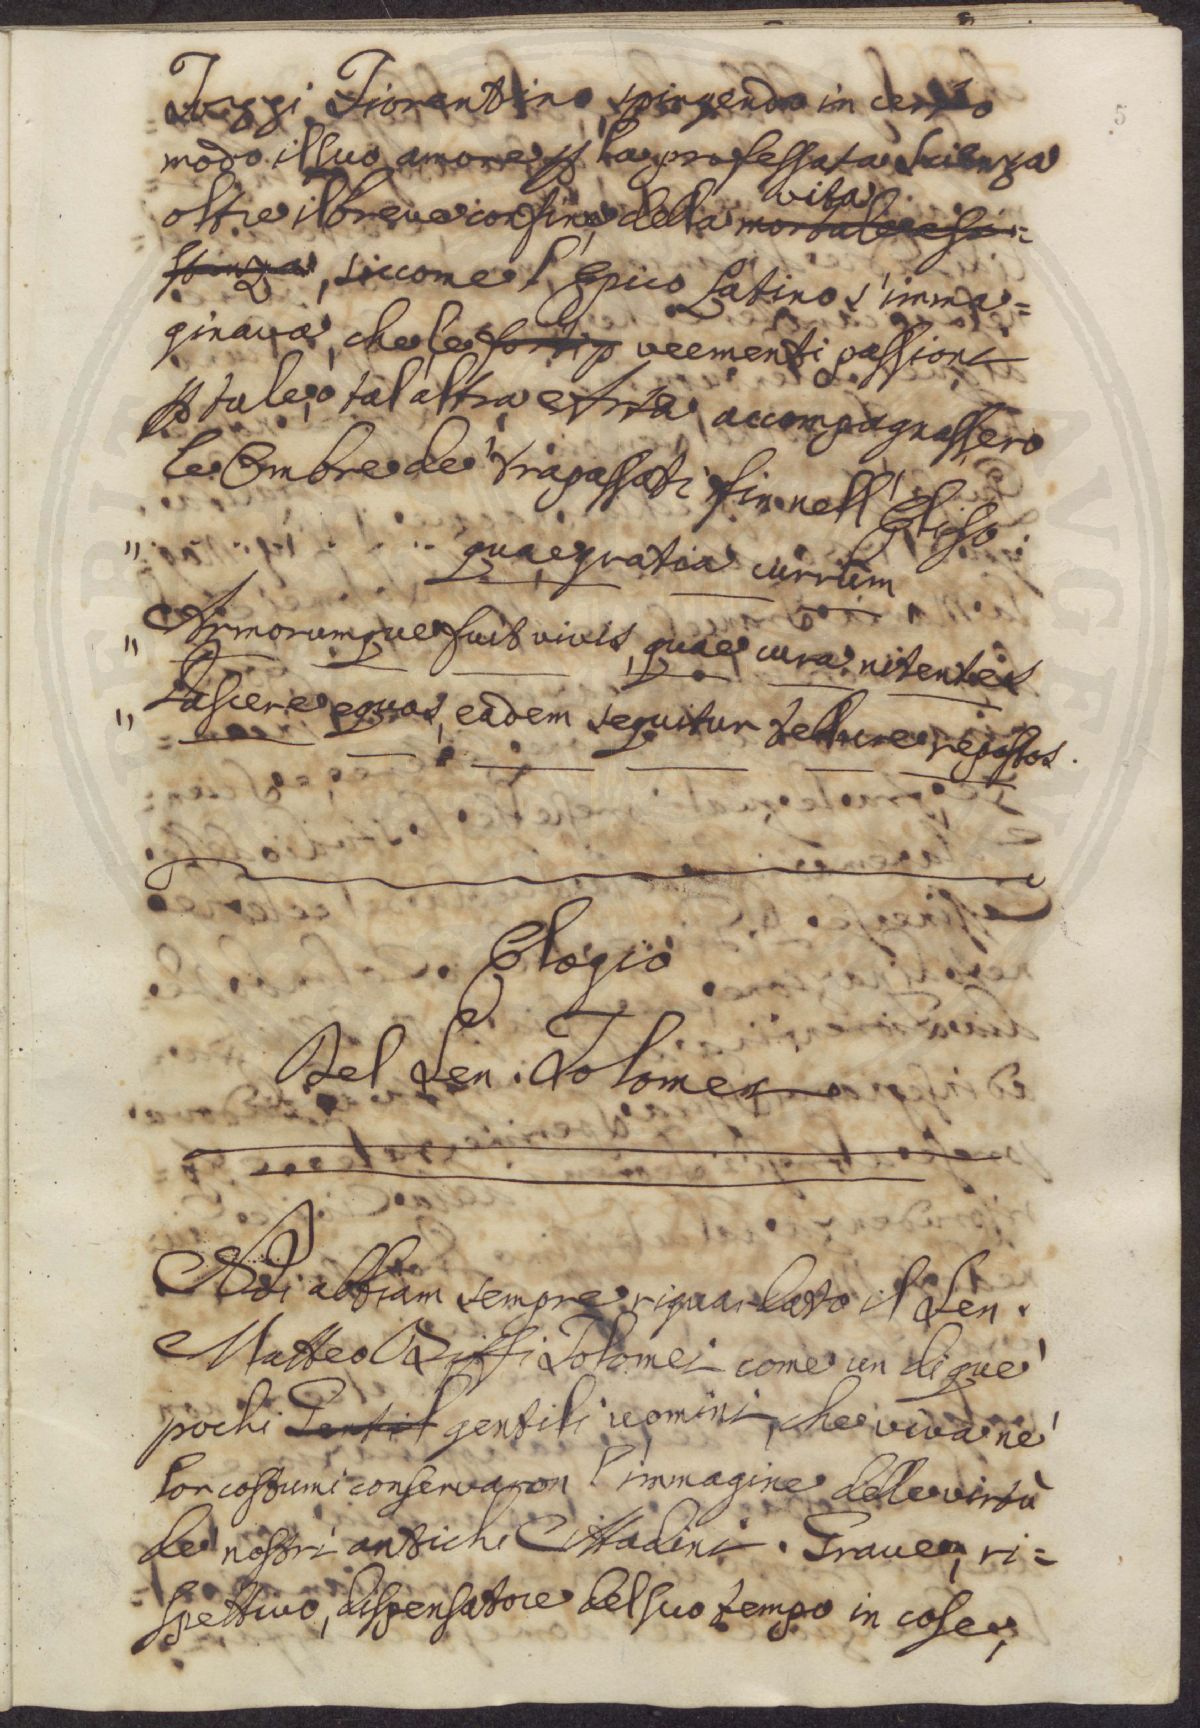 5
Poggi Fiorentino, spingendo in certo
modo il suo amore p la professata scienza
oltre il breve confine della mortale esi=
vita
stenza, siccome l'Epico Latino s'imma=
ginava, che le veementi passioni
p tale, o tal altra cosa accompagnassero
le Ombre de' trapassati fin nell'Eliso
" quae gratia currûm
" Armorumque fuit vivis, quae cura nitentes
" Pascere equos, eadem sequitur tellure repostos.
Elogio
Del Sen. Tolomei
Noi abbiam sempre riguardato il Sen.
Matteo Biffi Tolomei come un di que'
pochi Gentil gentili uomini, che viva ne'
lor costumi conservaron l'immagine delle virtù
de' nostri antichi Cittadini. Grave, ri=
spettivo, dispensatore del suo tempo in cose,